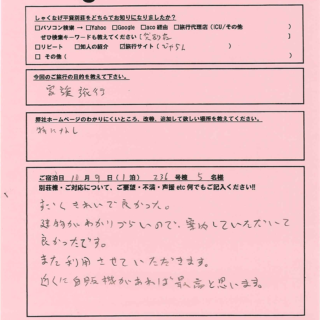 しゃくなげ平貸別荘をどちらでお知りになりましたか?
□パソコン検索→□Yahoo □Google □aco経由 □旅行代理店(ICU/その他 )
ぜひ検索キーワードも教えてください( )
□リピート □知人の紹介 ☑旅行サイト(じゃらん )
□ その他( )
今回のご旅行の目的を教えて下さい。
家族旅行
弊社ホームページのわかりにくいところ、改善、追加して欲しい場所を教えてください。
特になし
ご宿泊日 11月9日(1泊) 236号棟 5名様
別荘種・ご対応について、ご要望・不満・声援 etc 何でもご記入ください!!
すごくきれいで良かった。
建物がわかりづらいので、案内していただいて
良かったです。
また利用させていただきます。
近くに自販機があれば最高と思います。